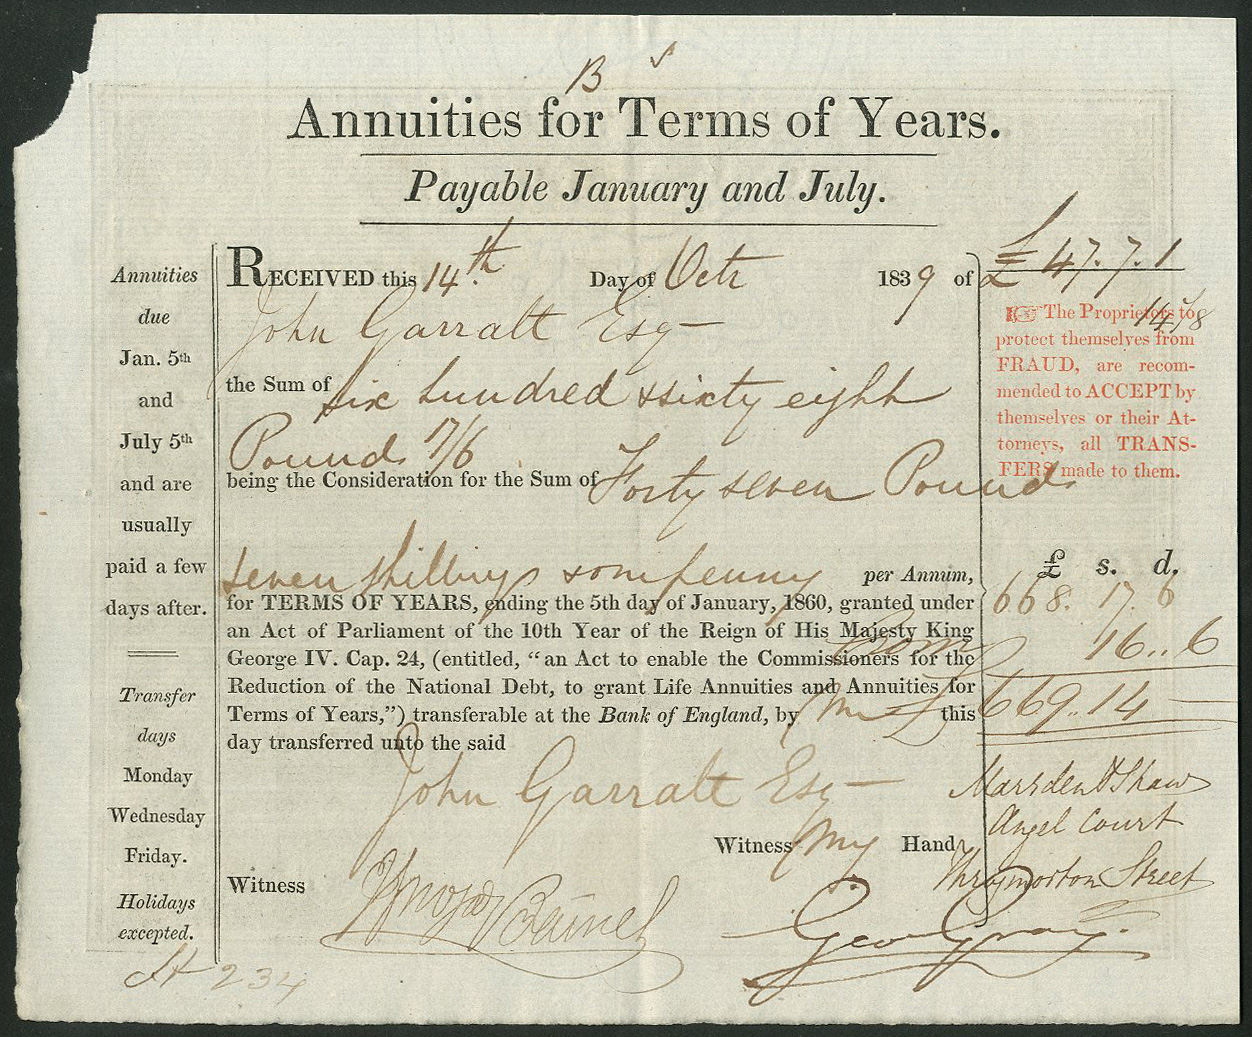 B
Annuities for Terms of Years.
Payable January and July.
Annuities
due
Jan. 5th
and
July 5th
and are
usually
paid a few
days after.
Transfer
days
Monday
Wednesday
Friday.
Holidays
excepted.
RECEIVED this 14th. Day of Octr 1839 of
John Garratt Esq
the Sum of six hundred & sixty eight
Pounds 17/6
being the Consideration for the Sum of Forty seven Pounds
seven shillings & one penny per Annum,
for TERMS OF YEARS, ending the 5th day of January, 1860, granted under
an Act of Parliament of the 10th Year of the Reign of His Majesty King
George IV. Cap. 24, (entitled, “an Act to enable the Commissioners for the
Reduction of the National Debt, to grant Life Annuities and Annuities for
Terms of Years,”) transferable at the Bank of England, by me this
day transferred unto the said
John Garratt Esq
Witness My Hand
Witness
Geo Gray.
£ 47.7.1
☞ The Proprietors to
protect themselves from
FRAUD, are recom-
mended to ACCEPT by
themselves or their At-
torneys, all TRANS-
FERS made to them.
£ s. d.
668. 17. 6
16..6
669..14
Marsden & Shaw
Angel Court
Throgmorton Street
234